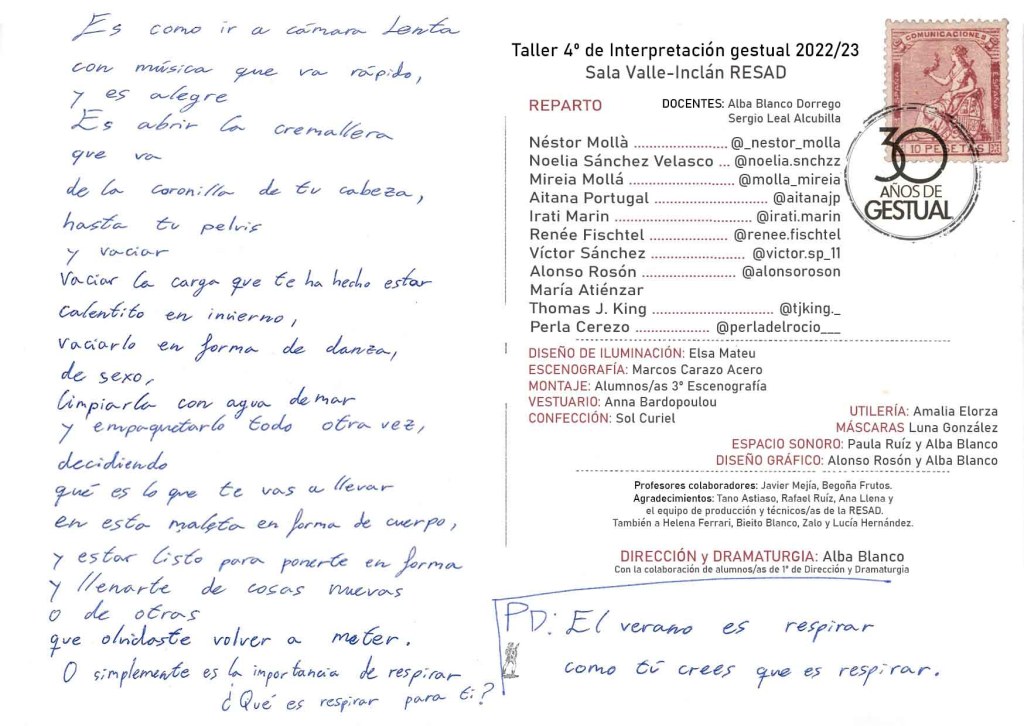 Es como ir a cámara lenta
con música que va rápido,
y es alegre
Es abrir la cremallera
que va
de la coronilla de tu cabeza,
hasta tu pelvis
y vaciar
Vaciar la carga que te ha hecho estar
calentito en invierno,
vaciarlo en forma de danza,
de sexo,
limpiarla con agua de mar
y empaquetarlo todo otra vez,
decidiendo
qué es lo que te vas a llevar
en esta maleta en forma de cuerpo,
y estar listo para ponerte en forma
y llenarte de cosas nuevas
o de otras
que olvidaste volver a meter.
O simplemente es la importancia de respirar
¿Qué es respirar para ti?
Taller 4º de Interpretación gestual 2022/23
Sala Valle-Inclán RESAD
COMUNICACIONES
ESPAÑA
10 PESETAS
30
AÑOS DE
GESTUAL
REPARTO
DOCENTES: Alba Blanco Dorrego
Sergio Leal Alcubilla
Néstor Mollà ........................ @_nestor_molla
Noelia Sánchez Velasco ... @noelia.snchzz
Mireia Mollá ........................... @molla_mireia
Aitana Portugal ............................ @aitanajp
Irati Marin ................................... @irati.marin
Renée Fischtel ..................... @renee.fischtel
Víctor Sánchez ........................ @victor.sp_11
Alonso Rosón ........................ @alonsoroson
María Atiénzar
Thomas J. King ............................... @tjking._
Perla Cerezo ................... @perladelrocio___
DISEÑO DE ILUMINACIÓN: Elsa Mateu
ESCENOGRAFÍA: Marcos Carazo Acero
MONTAJE: Alumnos/as 3º Escenografía
VESTUARIO: Anna Bardopoulou
CONFECCIÓN: Sol Curiel
UTILERÍA: Amalia Elorza
MÁSCARAS Luna González
ESPACIO SONORO: Paula Ruíz y Alba Blanco
DISEÑO GRÁFICO: Alonso Rosón y Alba Blanco
Profesores colaboradores: Javier Mejía, Begoña Frutos.
Agradecimientos: Tano Astiaso, Rafael Ruíz, Ana Llena y
el equipo de producción y técnicos/as de la RESAD.
También a Helena Ferrari, Bieito Blanco, Zalo y Lucía Hernández.
DIRECCIÓN y DRAMATURGIA: Alba Blanco
Con la colaboración de alumnos/as de 1º de Dirección y Dramaturgia
PD: El verano es respirar
como tú crees que es respirar.